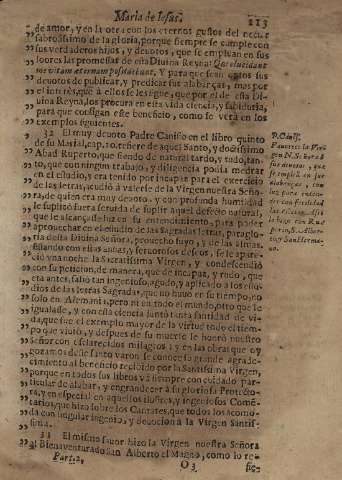 Maria de Iesus. 113
de amor, y en la otra con los eternos gustos del
sabrosissimo de la gloria, porque siempre se cumple con
sus verdaderos hijos, y devotos, que se emplean en sus
loores las promesas de esta Divina Reyna: Qui elucidant
me vitam æternam possidebunt. Y para que sean todos sus
devotos de publicar, y predicar sus alabanças, mas por
el interès, que à ellos se les sigue, que por el de esta Di-
vina Reyna, los procura en esta vida ciencia, y sabiduria,
para que consigan este beneficio, como se verà en los
exemplos siguientes.
32 El muy devoto Padre Canisio en el libro quinto
de su Marial, cap. 10. refiere de aquel Santo, y doctissimo
Abad Ruperto, que siendo de natural tardo, y rudo, tan-
to, que con ningun trabajo, y diligencia podia medrar
en el estudio, y era tenido por incapaz para el exercicio
de las letras, acudiò à valerse de la Virgen nuestra Seño-
ra, de quien era muy devoto, y con profunda humildad
le suplicò fuera servida de suplir aquel defecto natural,
que le alcançasse luz en su entendimiento, para poder
aprovechar en el estudio de las Sagradas letras, para glo-
ria de la Divina Señora, provecho suyo, y de las almas.
con estas ansias, y fervorosos deseos, se le apare-
ciò vna noche la Sacratissima Virgen, y condescendiò
con su peticion, de manera, que de incapaz, y rudo, que
era antes, saliò tan ingenioso, agudo, y aplicado à los estu-
dios de las letras Sagradas, que no huvo en su tiempo, no
solo en Alemania, pero ni en todo el mundo, otro que le
igualasse, y con esta ciencia juntò tanta santidad de vi-
da, que fue el exemplo mayor de la virtud todo el tiem-
po que viviò, y despues de su muerte le honrò nuestro
Señor con esclarecidos milagros, y en las obras que oy
gozamos de este santo varon se conoce su grande agrade-
cimiento al beneficio recibido por la Santissima Virgen,
porque en todos sus libros và siempre con cuidado par-
ticular de alabar, y engrandecer à su gloriosa Protecto-
ra, y en especial en aquellos ilustres, y ingeniosos Comē-
tarios, que hizo sobre los Cantares, que todos los acomo-
da con singular ingenio, y devocion à la Virgen Santis-
sima.
33 El mismo favor hizo la Virgen nuestra Señora
al Bienaventurado San Alberto el Magno, como lo re-
Part. 2. O 3 fie-
P. Canis.